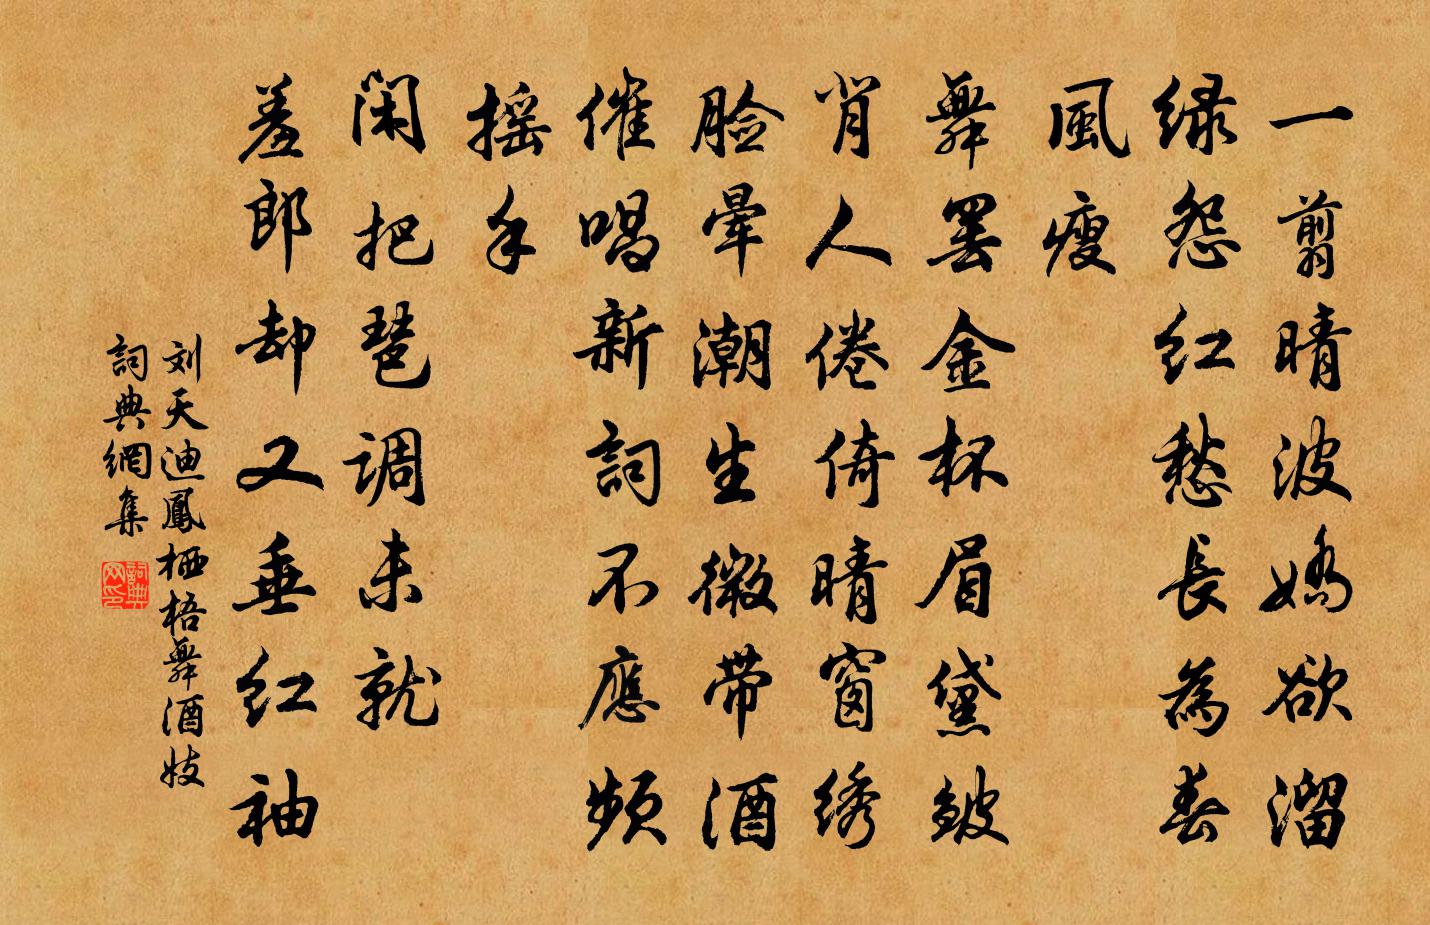 一翦晴波嬌欲溜
绿怨红愁長為春
風瘦
舞罢金杯眉黛皱
背人倦倚晴窗绣
脸暈潮生微带酒
催唱新詞不應频
摇手
闲把琶调未就
羞郎却又垂红袖
刘天迪鳳栖梧舞酒妓
詞典網集